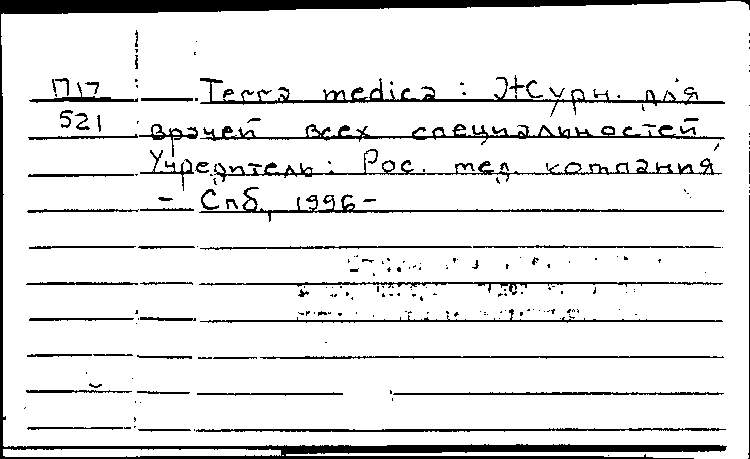 П17 Terra medica : Журн. для
521 врачей всех специальностей
Учредитель: Рос. мед. компания
- Спб., 1996-